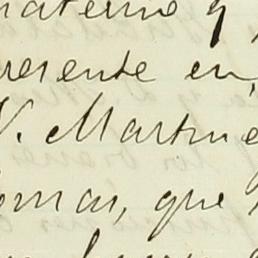 materno y
resente en
V. Martine
omar, que